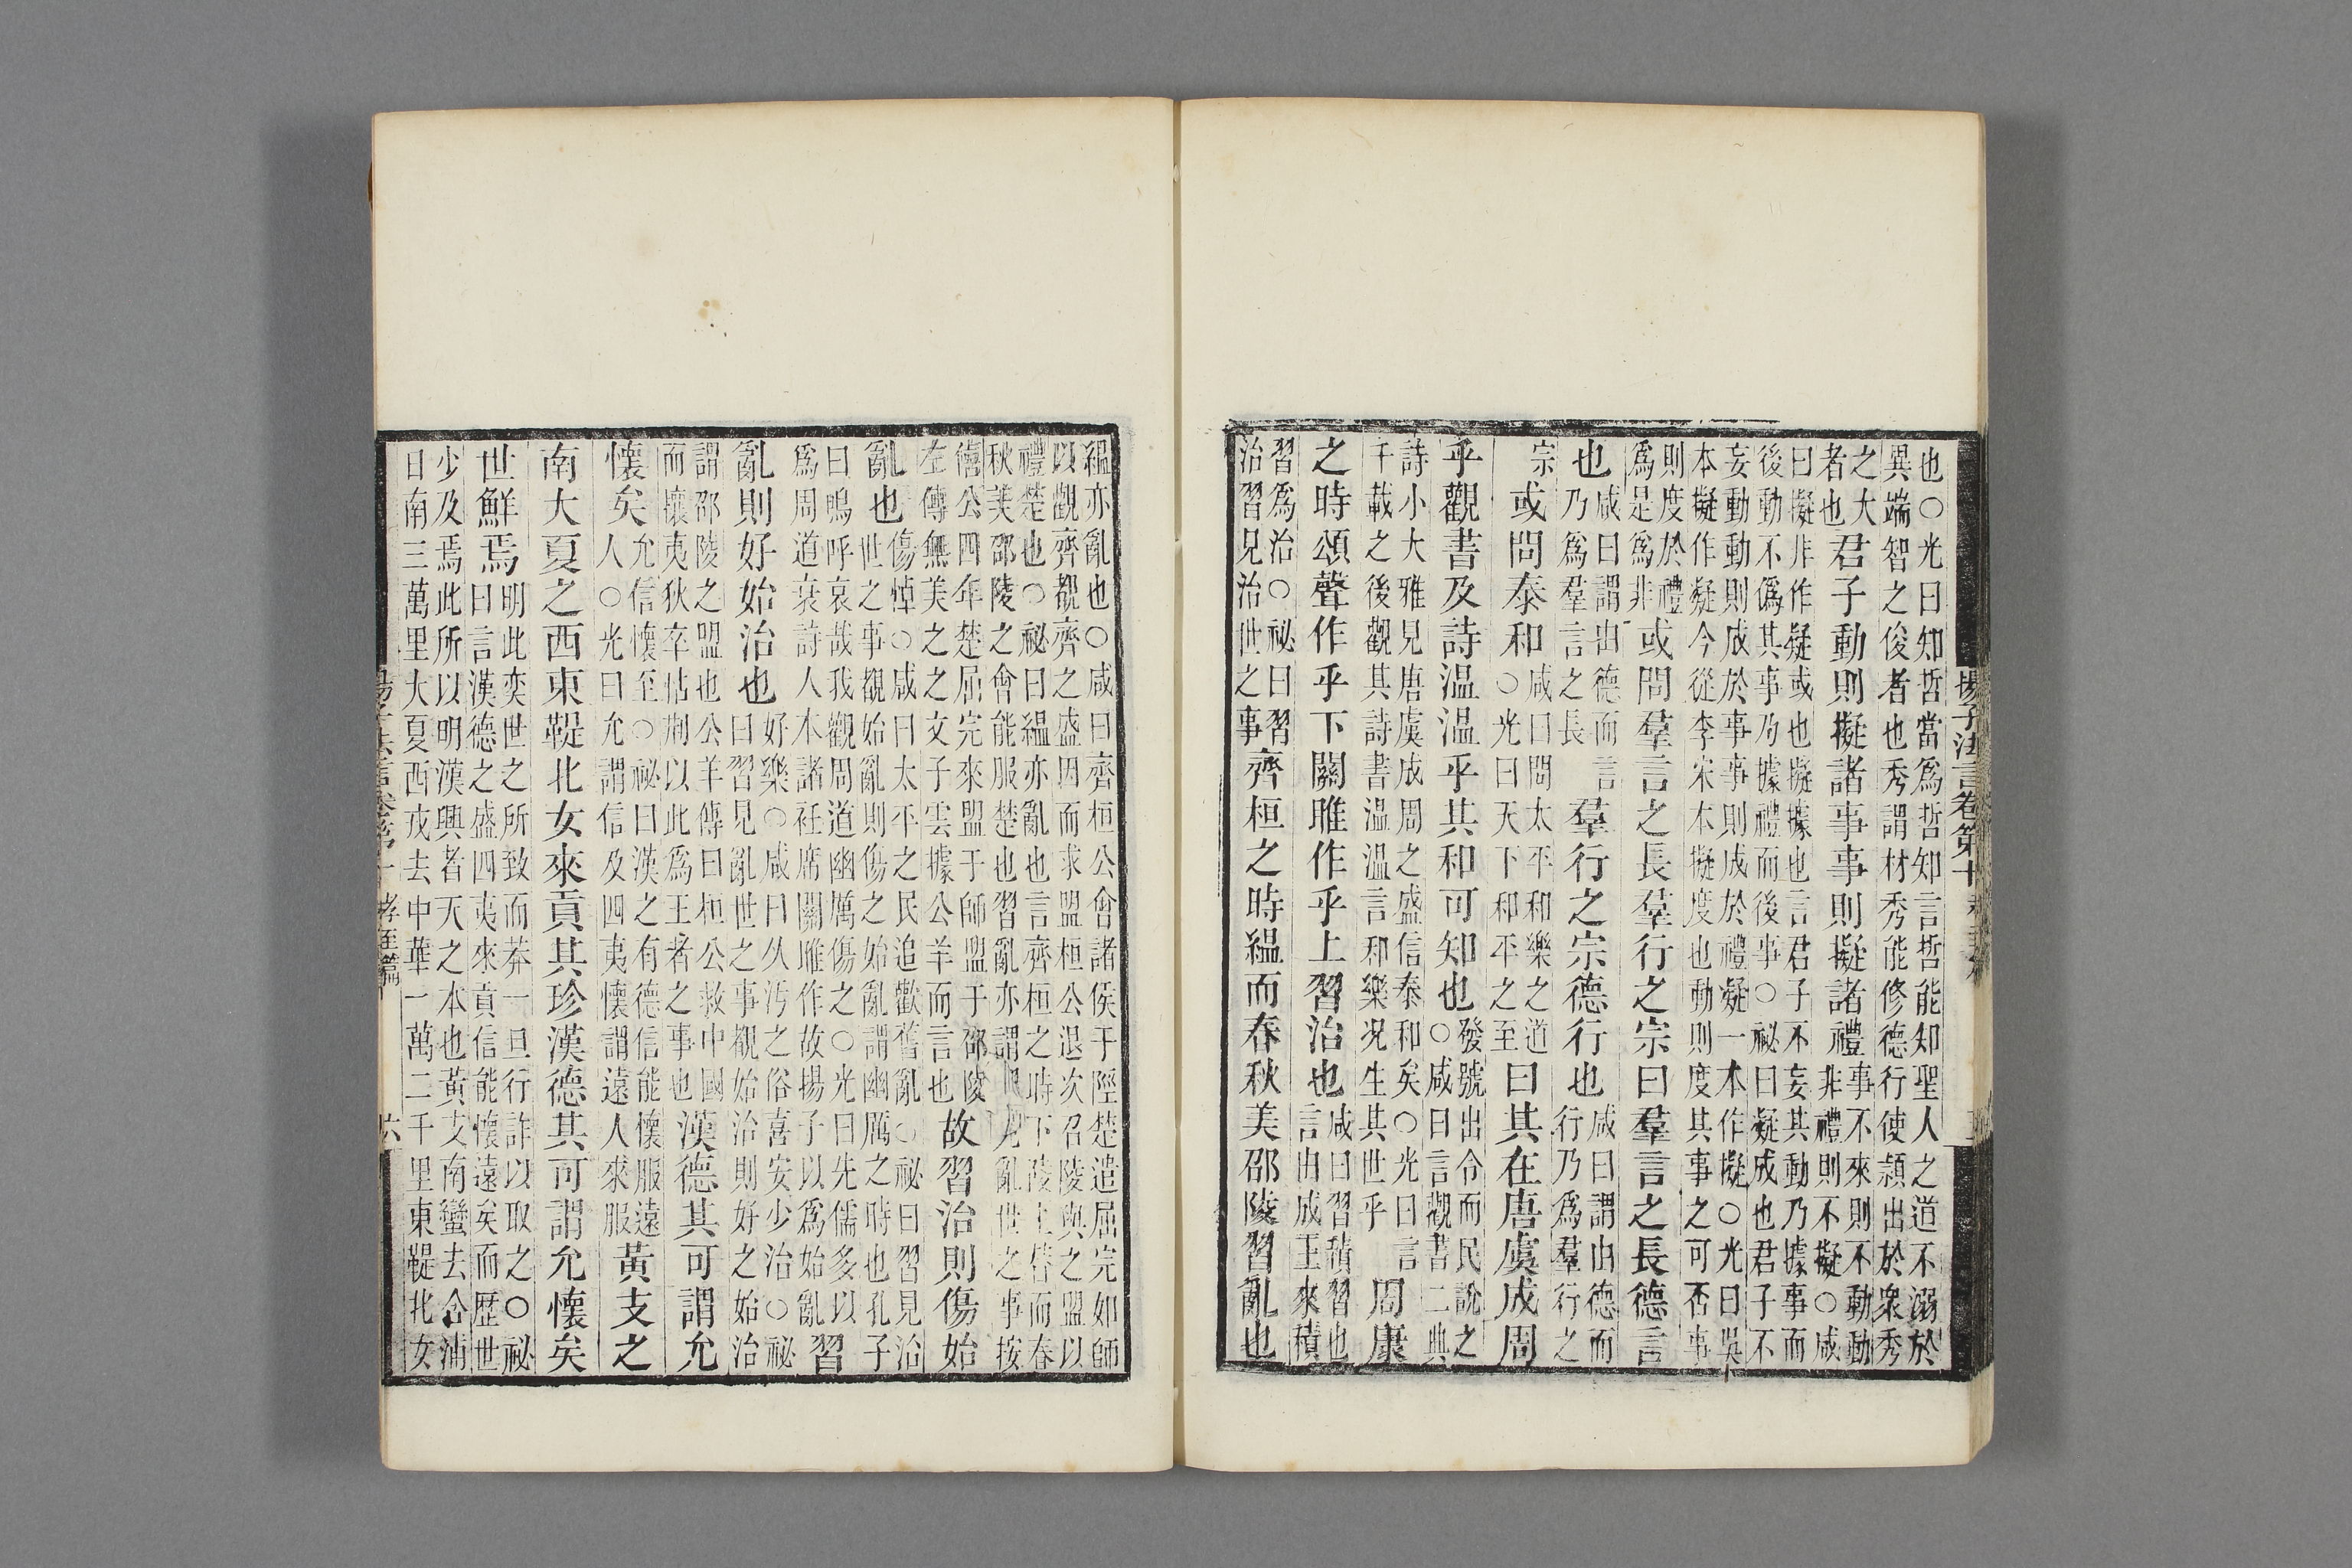 揚子法言卷第十
也○光曰知哲當爲哲知言哲能知聖人之道不溺於
異端智之俊者也秀謂材秀能修德行使頴出於衆秀
之大
者也
君子動則擬諸事事則擬諸禮
事不來則不動動
非禮則不擬○咸
曰擬非作疑或也擬據也言君子不妄其動乃據事而
後動不僞其事乃據禮而後事○祕曰疑成也君子不
妄動動則成於事事則成於禮凝一本作擬○光曰吳
本擬作疑今從李宋本擬度也動則度其事之可否事
則度於禮
爲是爲非
或問羣言之長羣行之宗曰羣言之長德言
也
咸曰謂由德而言
乃爲羣言之長
羣行之宗德行也
咸曰謂由德而
行乃爲羣行之
宗
或問泰和
咸曰問太平和樂之道
○光曰天下和平之至
曰其在唐虞成周
乎觀書及詩温温乎其和可知也
發號出令而民說之
○咸曰言觀書二典
詩小大雅見唐虞成周之盛信泰和矣○光曰言
千載之後觀其詩書温温言和樂况生其世乎
周康
之時頌聲作乎下關雎作乎上習治也
咸曰習積習也
言由成王來積
習爲治○祕曰習
治習見治世之事
齊桓之時緼而春秋美邵陵習亂也
緼亦亂也○咸曰齊桓公會諸侯于陘楚遣屈完如師
以觀齊覩齊之盛因而求盟桓公退次召陵與之盟以
禮楚也○祕曰緼亦亂也言齊桓之時下陵上替而春
秋美邵陵之會能服楚也習亂亦謂習見亂世之事按
僖公四年楚屈完來盟于師盟于邵陵
左傳無美之之文子雲據公羊而言也
故習治則傷始
亂也
傷悼○咸曰太平之民追歡舊亂○祕曰習見治
世之事觀始亂則傷之始亂謂幽厲之時也孔子
曰嗚呼哀哉我觀周道幽厲傷之○光曰先儒多以
爲周道衰詩人本諸衽席關雎作故揚子以爲始亂
習
亂則好始治也
好樂○咸曰久汚之俗喜安少治○祕
曰習見亂世之事觀始治則好之始治
謂邵陵之盟也公羊傳曰桓公救中國
而攘夷狄卒怗荆以此爲王者之事也
漢德其可謂允
懷矣
允信懷至○祕曰漢之有德信能懷服遠
人○光曰允謂信及四夷懷謂遠人來服
黃支之
南大夏之西東鞮北女來貢其珍漢德其可謂允懷矣
世鮮焉
明此奕世之所致而莽一旦行詐以取之○祕
曰言漢德之盛四夷來貢信能懷遠矣而歷世
少及焉此所以明漢興者天之本也黃支南蠻去合浦
日南三萬里大夏西戎去中華一萬二千里東鞮北女
孝至篇
六